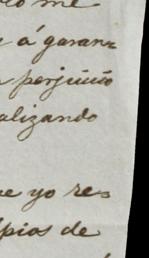 me
á garan=
perjuicio
alizando
ue yo re=
pios de